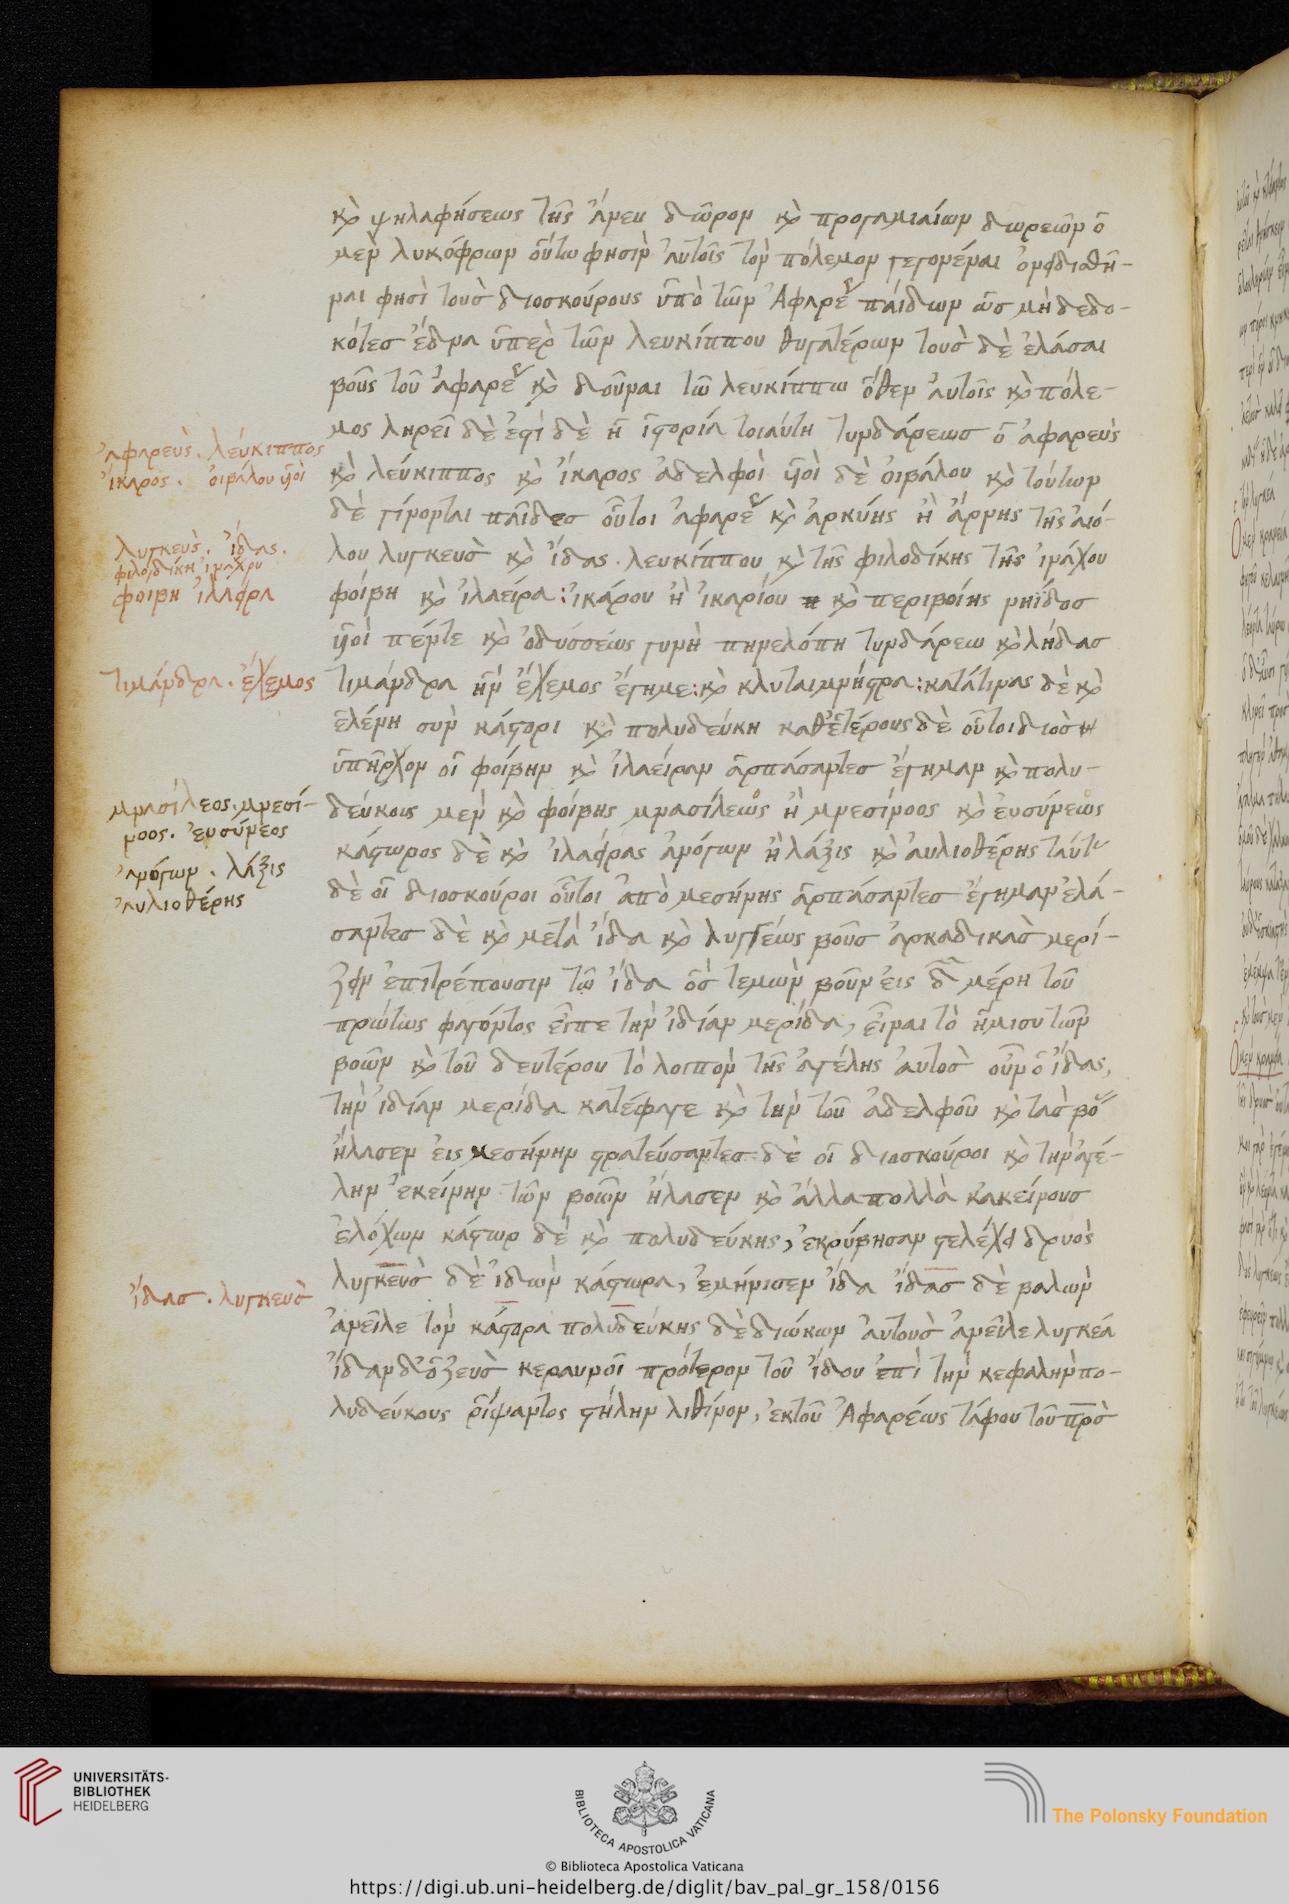 καὶ ψηλαφήσεως τῆς ἄνευ δώρον καὶ προγαμιαίων δωρεῶν ὁ
μὲν λυκόφρων οὕτω φησὶν αὐτοῖς τὸν πόλεμον γεγονέναι ὀνειδιαθῆ-
ναι φησὶ τοὺσ διοσκούρους ὑπὸ τῶν Ἀφαρέως παίδων ὡσ μὴ δεδο-
κότεσ ἕδνα ὑπὲρ τῶν λευκίππου θυγατέρων τοὺσ δὲ ἐλάσαι
βοῦς τοῦ ἀφαρέως καὶ δοῦναι τῶ λευκίππω ὅθεν αὐτοῖς καὶ πόλε-
μος ληρεῖ δὲ ἐστὶ δὲ ἡ ἱστορία τοιαύτη τυνδάρεωσ ὁ ἀφαρεὺς
καὶ λεύκιππος καὶ ἴκαρος ἀδελφοὶ ὑιοὶ δὲ ὀιβάλου καὶ τούτων
δὲ γίνονται παῖδεσ οὗτοι ἀφαρέως καὶ ἀρκύης ἢ ἄρνης τῆς αἰό-
λου λυγκεὺσ καὶ ἴδας. λευκίππου καὶ τῆς φιλοδίκης τῆς ἰνάχου
φοίβη καὶ ἰλαείρα: ἰκάρου ἢ ἰκαρίου καὶ περιβοίης νηΐδοσ
ὑιοὶ πέντε καὶ ὀδύσσεώς γυνὴ πηνελόπη τυνδάρεω καὶ λήδασ
τιμάνδρα ἣν ἔχεμος ἔγημε: καὶ κλυταιμνήστρα: κατάτινας δὲ καὶ
ἑλένη σὺν κάστορι καὶ πολυδεύκη καθἑτέρους δὲ οὗτοι διὸσ
ὑπῆρχον οἳ φοίβην καὶ ἰλαείραν ἁρπάσαντεσ ἔγημαν καὶ πολυ-
δεύκους μὲν καὶ φοίβης μνασίλεως ἢ μνεσίνοος καὶ ἐυσύνεως
κάστωρος δὲ καὶ ἰλαείρας ἀνόγων ἢ λάξις καὶ ἀυλιοθέρης ταύτας
δὲ οἱ διοσκούροι οὗτοι ἀπὸ μεσήνης ἁρπάσαντεσ ἔγημαν ἐλά-
σαντεσ δὲ καὶ μετὰ ἴδα καὶ λυγγέως βοῦσ ἀρκαδικὰσ μερί-
ζειν ἐπιτρέπουσιν τῶ ἴδα ὃσ τεμὼν βοῦν εἰς δ μέρη τοῦ
πρώτως φαγόντος εἶπε τὴν ἰδίαν μερίδα, εἶναι τὸ ἥμισυ τῶν
βοῶν καὶ τοῦ δευτέρου τὸ λοιπὸν τῆς ἀγέλης ἀυτοσ οὖν ὁ ἴδας,
τὴν ἰδίαν μερίδα κατέφαγε καὶ τὴν τοῦ ἀδελφοῦ καὶ τὰσ βό
ἤλασεν εἰς μεσήνην στρατεύσαντεσ δὲ οἱ διοσκούροι καὶ τὴν ἀγέ-
λην ἐκείνην τῶν βοῶν ἤλασεν καὶ ἄλλα πολλὰ κἀκείνουσ
ἐλόχων κάστωρ δὲ καὶ πολυδεύκης, ἐκρύβησαν στελέχει δρυὸς
λυγκεὺσ δὲ ἰδὼν κάστωρα, ἐμήνισεν ἴδα ἴδασ δὲ βαλὼν
ἀνεῖλε τὸν κάστορα πολυδεύκης δὲ διώκων ἀυτοὺσ ἀνεῖλε λυγκέα
ἴδαν δ' ὁ ζεὺσ κεραυνοῖ πρότερον τοῦ ἴδου ἐπὶ τὴν κεφαλὴν πο-
λυδεύκους ῥίψαντος στήλην λιθίνον, ἐκτοῦ Ἀφαρέως τάφου τοῦ πρὸσ
ἀφαρεὺς. λεύκιππος
ἴκαρος. ὀιβάλου ὑιοὶ
λυγκεὺς. ἴδας.
φιλοδίκη ἰνάχου
φοιβη ἰλαείρα
τιμάνδρα. ἔχεμος
μνασίλεος. μνεσί-
νοος. ἐυσύνεος
ἀνόγων. λάξις
ἀυλιοθέρης
ἴδασ. λυγκευσ
UNIVERSITÄTS-
BIBLIOTHEK
HEIDELBERG
BIBLIOTECA APOSTOLICA VATICANA
The Polonsky Foundation
© Biblioteca Apostolica Vaticana
https://digi.ub.uni-heidelberg.de/diglit/bav_pal_gr_158/0156